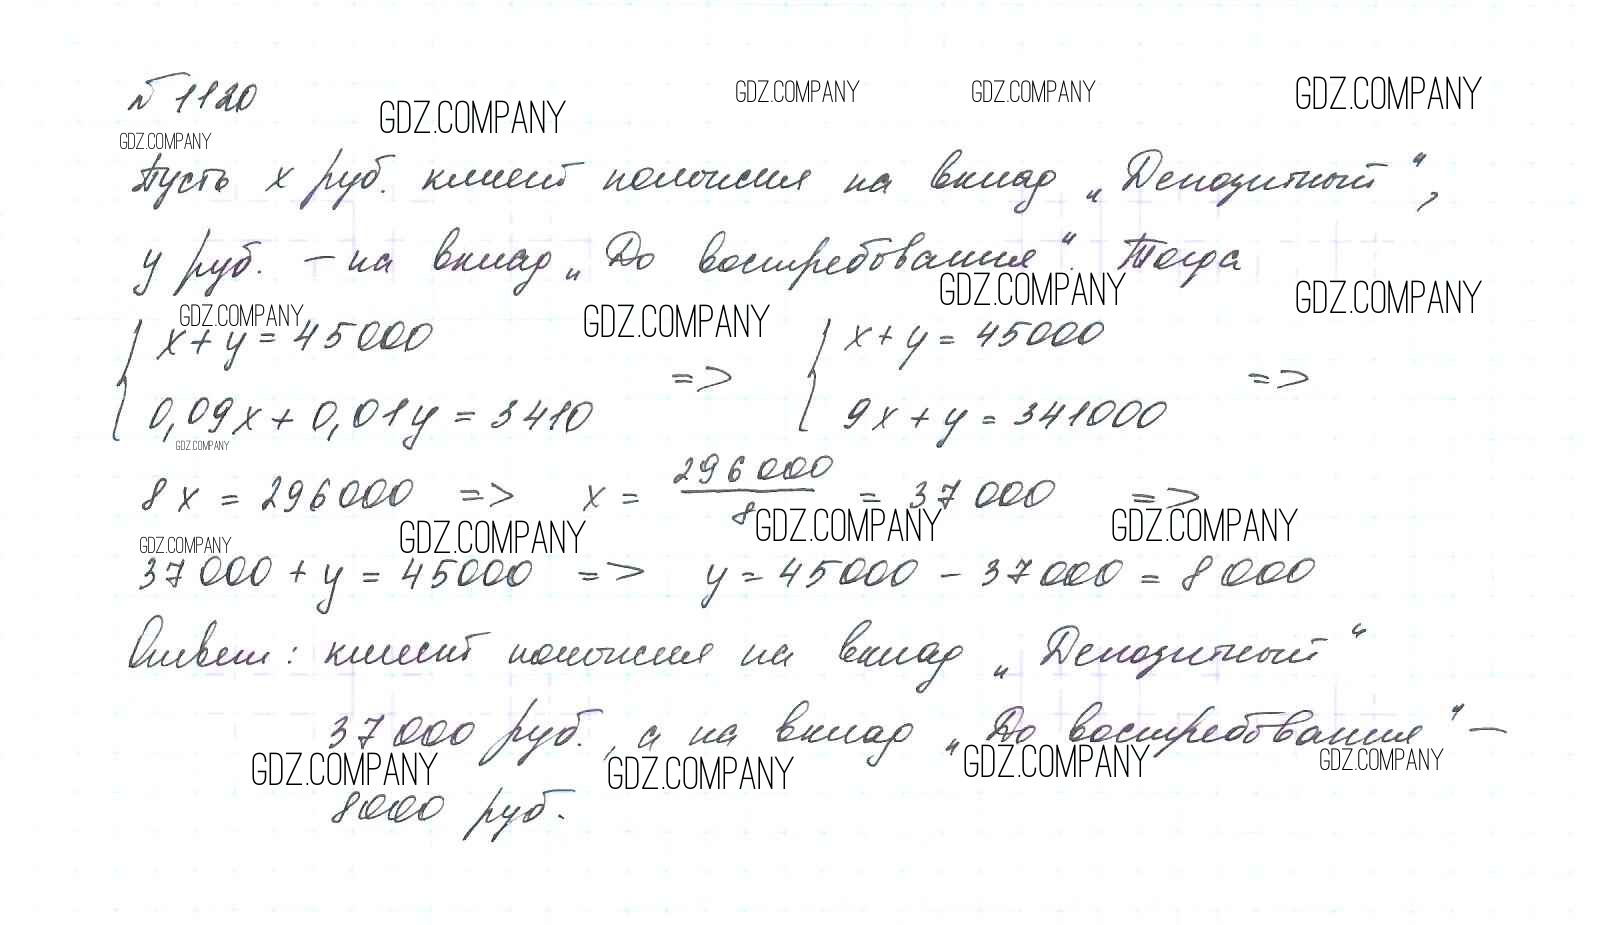 № 1120
GDZ.COMPANY GDZ.COMPANY GDZ.COMPANY GDZ.COMPANY
GDZ.COMPANY
Пусть x руб. клиент положил на вклад „Депозитный“,
y руб. – на вклад „До востребования“. Тогда
GDZ.COMPANY GDZ.COMPANY GDZ.COMPANY GDZ.COMPANY
{ x + y = 45000 => { x + y = 45000 =>
0,09x + 0,01y = 3410 9x + y = 341000
GDZ.COMPANY
8x = 296000 => x = 296000/8 = 37000 =>
GDZ.COMPANY GDZ.COMPANY GDZ.COMPANY GDZ.COMPANY
37000 + y = 45000 => y = 45000 – 37000 = 8000
Ответ: клиент положил на вклад „Депозитный“
37000 руб., а на вклад „До востребования“ –
GDZ.COMPANY GDZ.COMPANY GDZ.COMPANY GDZ.COMPANY
8000 руб.